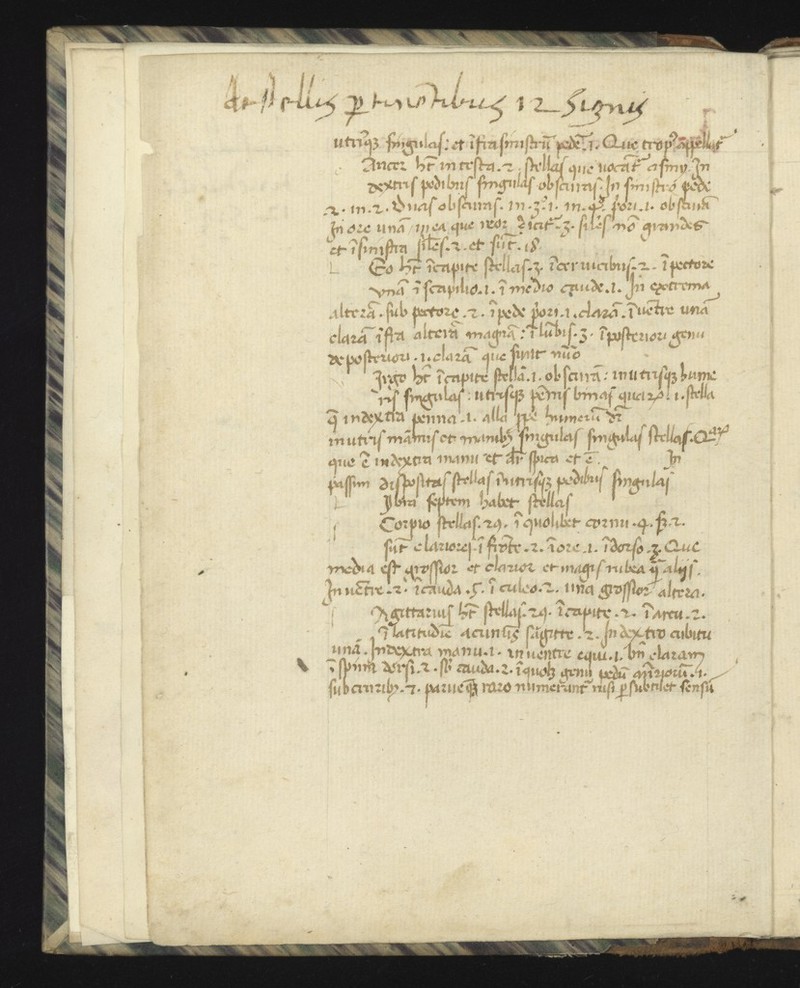 de stellis ptinetibus 12 signis
utrisq singulas: et ifra sinistru pede .1. Que trop9 appellat
Ancer ht in testa .2. stellas que vocat asiny. In
dextris pedibus singulas obscuras. In sinistro pede
.2. in .2. Duas obscuras. in .3. 1. in .4. pori .1. obscura
In ore una in ea que .3. siles no grandes
et i sinistra siles .2. et sut .18.
Eo ht i capite stellas .3. i cervicibus .2. i pectore
una i scapilio .1. i medio caude .1. In extrema
altera. sub pectore .2. i pede pori .1. clara. i vetre una
clara ifra altera magna: i lubis .3. i posteriori genu
de posteriori .1. clara que sunt nuo
Irgo ht i capite stella .1. obscura: in utrisq hume
ris singulas: utrisq penis binas quarz .1. stella
q in dextra penna .1. alla humeru dr
in utris manus et manibz singulas singulas stellas. Qarz
que e in dextra manu et dr spica et e. In
passim dispositas stellas i utrisq pedibus singulas
Ibra septem habet stellas
Corpio stellas .29. i quolibet cornu .4. sz .2.
sut clariores i frote .2. i ore .1. i dorso .3. Que
media est grossior et clarior et magis rubea q aliis.
In vetre .2. i cauda .5. i culeo .2. una grossior altera.
Agittarius ht stellas .29. i capite .2. i arcu .2.
i latitudie sagitte .2. In dextro cubitu
una. In dextra manu .1. in ventre equi .1. bn claram
i spina dorsi .2. sr cauda .2. i quolz genu pedu ariorum .1.
sub cruribz .7. parueq raro numerant nisi p subtilet sensu